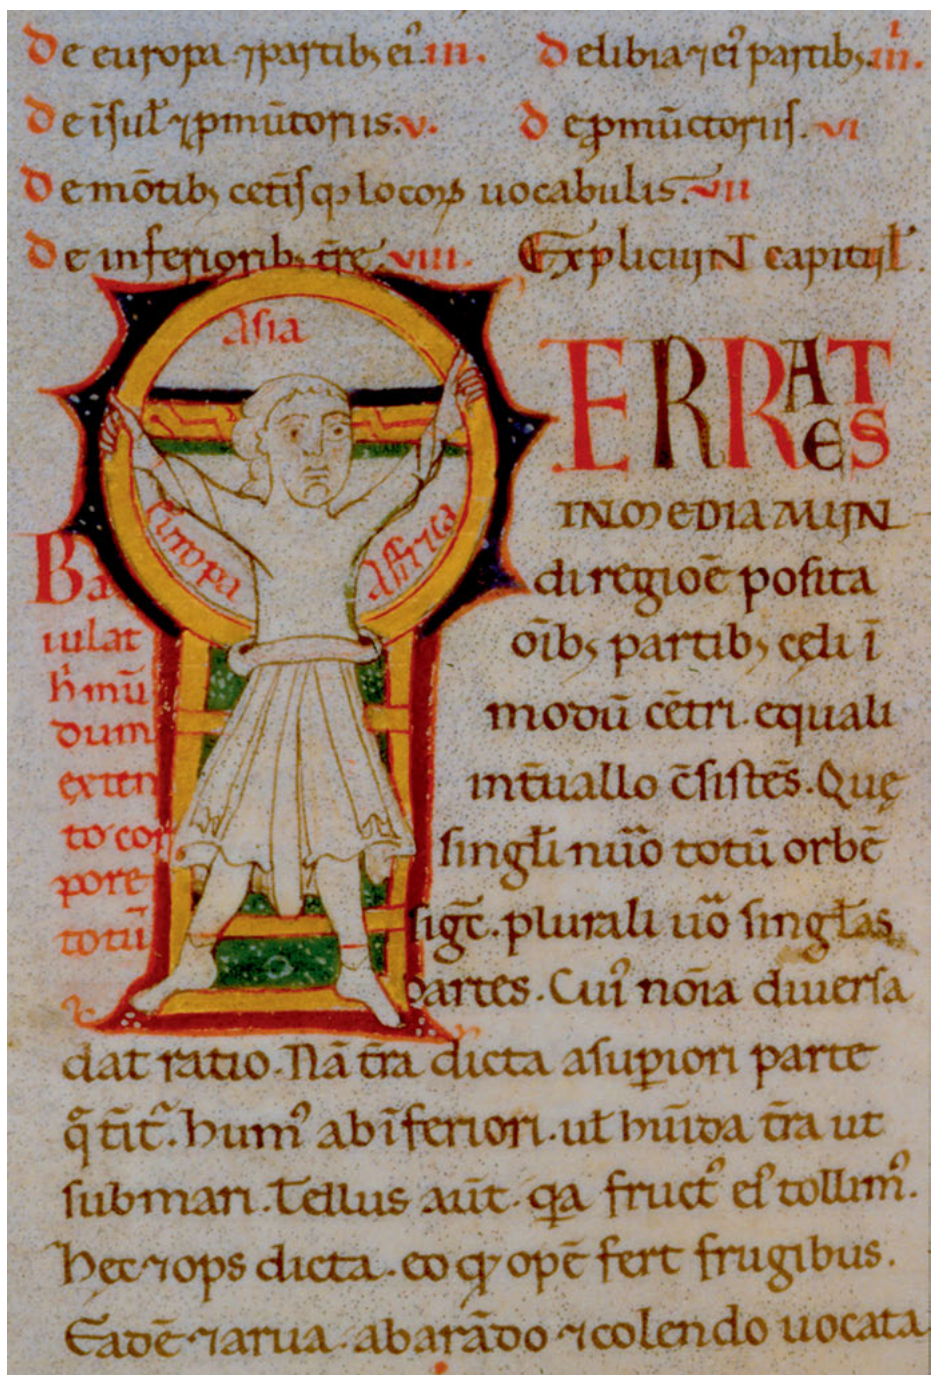 De europa ⁊ partib; ei᾽. iii. De libia ⁊ ei᾽ partib;. iiii.
De īsul̄ ⁊ ꝓmūtoriis. v. De ꝓmūctoriis. vi
De mōtib; cet̄isq; locoꝝ uocabulis. vii
De inferiorib; t̄re. viii. Expliciunt capitul̄.
Asia
ERRA EST
Europa
Affrica
IN MEDIA MUN
di regioē posita
oīb; partib; cęli ī
modū cēt̄ri. equali
int̄uallo c̄sistēs. Quę
singl̄i nūo totū orbē
sigt̄. plurali ūo singl̄as
partes. Cui᾽ noīa diuersa
Ba
iulat
h̄ mū
dum
exten
to cor
pore
totū
dat ratio. Nā t̄ra dicta a supiori parte
q̄ t̄it᷑. hum᾽ ab īferiori. ul̄ hūida t̄ra ut
sub mari. Tellus aūt. qa fruct᾽ ei᾽ tollim᾽.
hęc ⁊ ops dicta. eo qꝫ opē fert frugibus.
Eadē ⁊ arua. ab arādo ⁊ colendo uocata